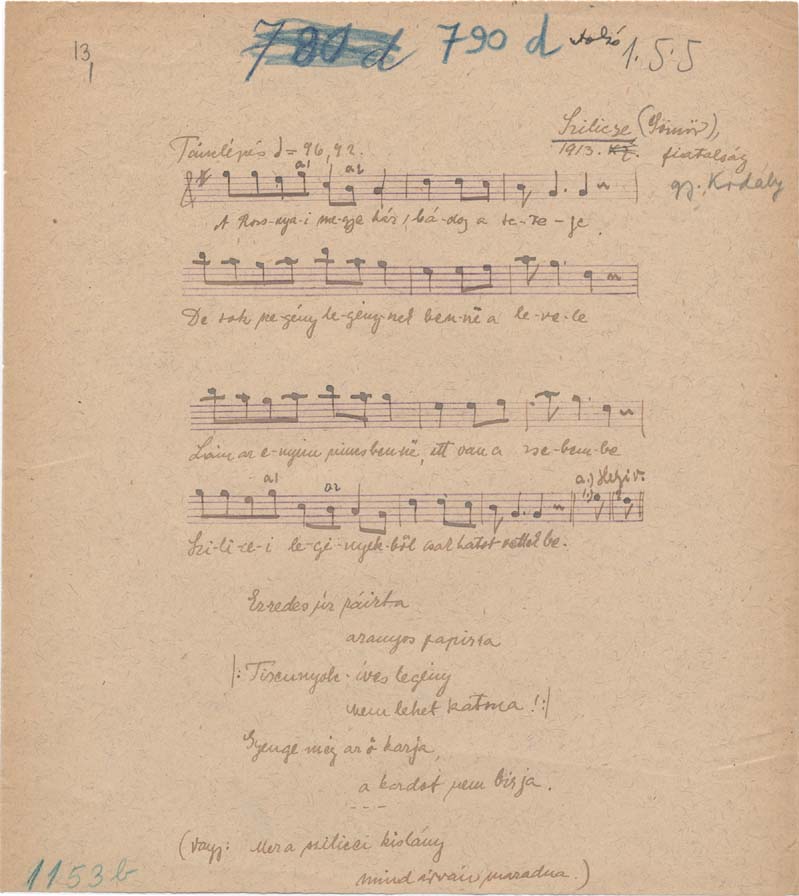 13
790 d
1.5.5
Szilicze (Gömör),
1913. fiatalság
gy. Kodály
Támlépés = 96, 92.
a1 a2
A Rozs-nya-i me-gye ház, bá-dog a te-te-je.
De sok sze-gény le-gény-nek ben-ne a le-ve-le
Lám az e-nyim nincs ben-ne, itt van a zse-bem-be
a1 a2 a.)
Szi-li-ce-i le-gé-nyek-ből csak hatot vettek be.
Ezredes úr ráirta
aranyos papirra
|: Tizennyolc-éves legény
nem lehet katona! :|
Gyenge még az ő karja
a kardot nem birja.
(vagy: Mer a szilicei kislány
mind árván maradna.)
1153b